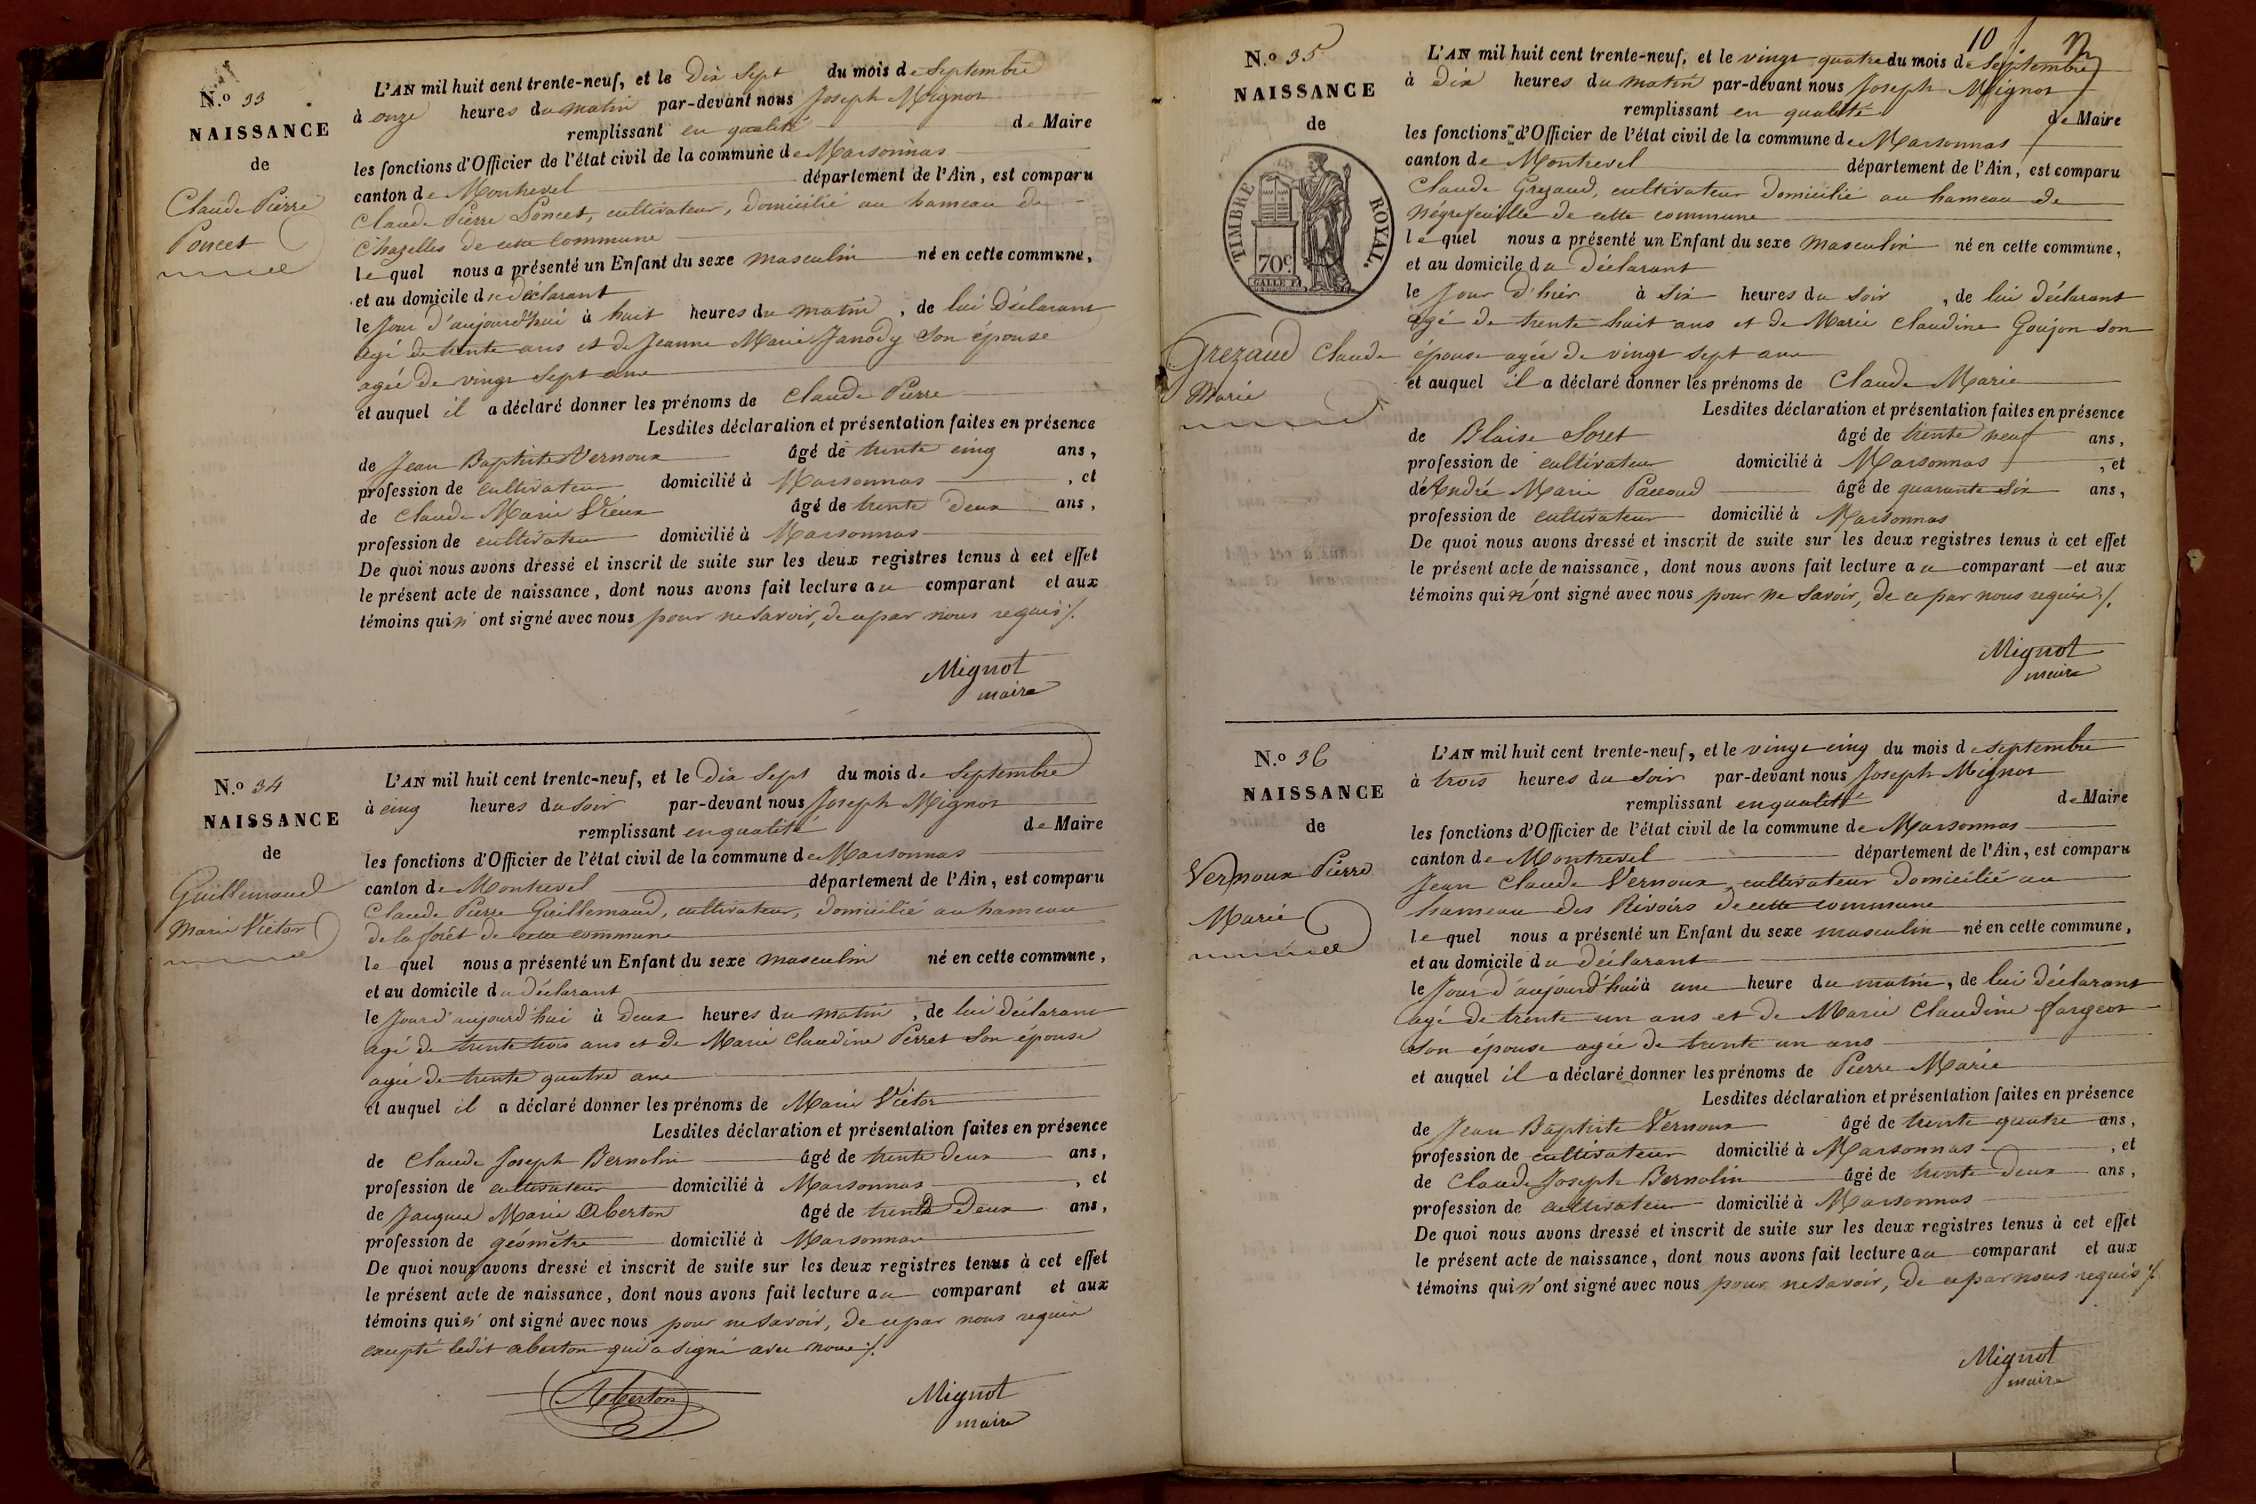 N.o 33
NAISSANCE
de
Claude Pierre
Poncet
L'AN mil huit cent trente-neuf, et le Dix Sept du mois de Septembre
à onze heures du matin par-devant nous Joseph Mignot
remplissant en qualité de Maire
les fonctions d'Officier de l'état civil de la commune de Marsonnas
canton de Montrevel département de l'Ain, est comparu
Claude Pierre Poncet, cultivateur, domicilié au hameau de
Chazelles de cette commune
le quel nous a présenté un Enfant du sexe masculin né en cette commune,
et au domicile du déclarant
le Jour d'aujourd'hui à huit heures du matin, de lui Déclarant
agé de trente ans et de Jeanne Marie Janody son épouse
agée de vingt sept ans
et auquel il a déclaré donner les prénoms de Claude Pierre
Lesdites déclaration et présentation faites en présence
de Jean Baptiste Vernoux âgé de trente cinq ans,
profession de cultivateur domicilié à Marsonnas, et
de Claude Marie Vieux âgé de trente Deux ans,
profession de cultivateur domicilié à Marsonnas
De quoi nous avons dressé et inscrit de suite sur les deux registres tenus à cet effet
le présent acte de naissance, dont nous avons fait lecture au comparant et aux
témoins qui n'ont signé avec nous pour ne savoir, de ce par nous requis ./.
Mignot
maire
N.o 34
NAISSANCE
de
Guillemaud
Marie Victor
L'AN mil huit cent trente-neuf, et le Dix Sept du mois de Septembre
à cinq heures du soir par-devant nous Joseph Mignot
remplissant en qualité de Maire
les fonctions d'Officier de l'état civil de la commune de Marsonnas
canton de Montrevel département de l'Ain, est comparu
Claude Pierre Guillemaud, cultivateur, domicilié au hameau
de la forêt de cette commune
le quel nous a présenté un Enfant du sexe masculin né en cette commune,
et au domicile du déclarant
le Jour d'aujourd'hui à deux heures du matin, de lui déclarant
agé de trente trois ans et de Marie Claudine Perret son épouse
agée de trente quatre ans
et auquel il a déclaré donner les prénoms de Marie Victor
Lesdites déclaration et présentation faites en présence
de Claude Joseph Bernolin âgé de trente deux ans,
profession de cultivateur domicilié à Marsonnas, et
de Jacques Marie Aberton âgé de trente Deux ans,
profession de géomètre domicilié à Marsonnas
De quoi nous avons dressé et inscrit de suite sur les deux registres tenus à cet effet
le présent acte de naissance, dont nous avons fait lecture au comparant et aux
témoins qui n'ont signé avec nous pour ne savoir, de ce par nous requis
excepté ledit aberton qui a signé avec nous ./.
Aberton Mignot
maire
10 n
N.o 35
NAISSANCE
de
TIMBRE ROYAL.
70c.
Grezaud Claude
Marie
L'AN mil huit cent trente-neuf, et le vingt quatre du mois de Septembre
à Dix heures du matin par-devant nous Joseph Mignot
remplissant en qualité de Maire
les fonctions d'Officier de l'état civil de la commune de Marsonnas
canton de Montrevel département de l'Ain, est comparu
Claude Grezaud, cultivateur domicilié au hameau de
Négrefeuille de cette commune
le quel nous a présenté un Enfant du sexe masculin né en cette commune,
et au domicile du Déclarant
le Jour d'hier à six heures du soir, de lui déclarant
agé de trente huit ans et de Marie Claudine Goujon son
épouse agée de vingt sept ans
et auquel il a déclaré donner les prénoms de Claude Marie
Lesdites déclaration et présentation faites en présence
de Blaise Soret âgé de trente neuf ans,
profession de cultivateur domicilié à Marsonnas, et
de André Marie Paccoud âgé de quarante Six ans,
profession de cultivateur domicilié à Marsonnas
De quoi nous avons dressé et inscrit de suite sur les deux registres tenus à cet effet
le présent acte de naissance, dont nous avons fait lecture au comparant et aux
témoins qui n'ont signé avec nous pour ne savoir, de ce par nous requis ./.
Mignot
maire
N.o 36
NAISSANCE
de
Vernoux Pierre
Marie
L'AN mil huit cent trente-neuf, et le vingt cinq du mois de septembre
à trois heures du soir par-devant nous Joseph Mignot
remplissant en qualité de Maire
les fonctions d'Officier de l'état civil de la commune de Marsonnas
canton de Montrevel département de l'Ain, est comparu
Jean Claude Vernoux, cultivateur domicilié au
hameau des Rivoirs de cette commune
le quel nous a présenté un Enfant du sexe masculin né en cette commune,
et au domicile du déclarant
le Jour d'aujourd'hui à une heure du matin, de lui déclarant
agé de trente un ans et de Marie Claudine fargeot
son épouse agée de trente un ans
et auquel il a déclaré donner les prénoms de Pierre Marie
Lesdites déclaration et présentation faites en présence
de Jean Baptiste Vernoux âgé de trente quatre ans,
profession de cultivateur domicilié à Marsonnas, et
de Claude Joseph Bernolin âgé de trente Deux ans,
profession de cultivateur domicilié à Marsonnas
De quoi nous avons dressé et inscrit de suite sur les deux registres tenus à cet effet
le présent acte de naissance, dont nous avons fait lecture au comparant et aux
témoins qui n'ont signé avec nous pour ne savoir, de ce par nous requis ./.
Mignot
maire